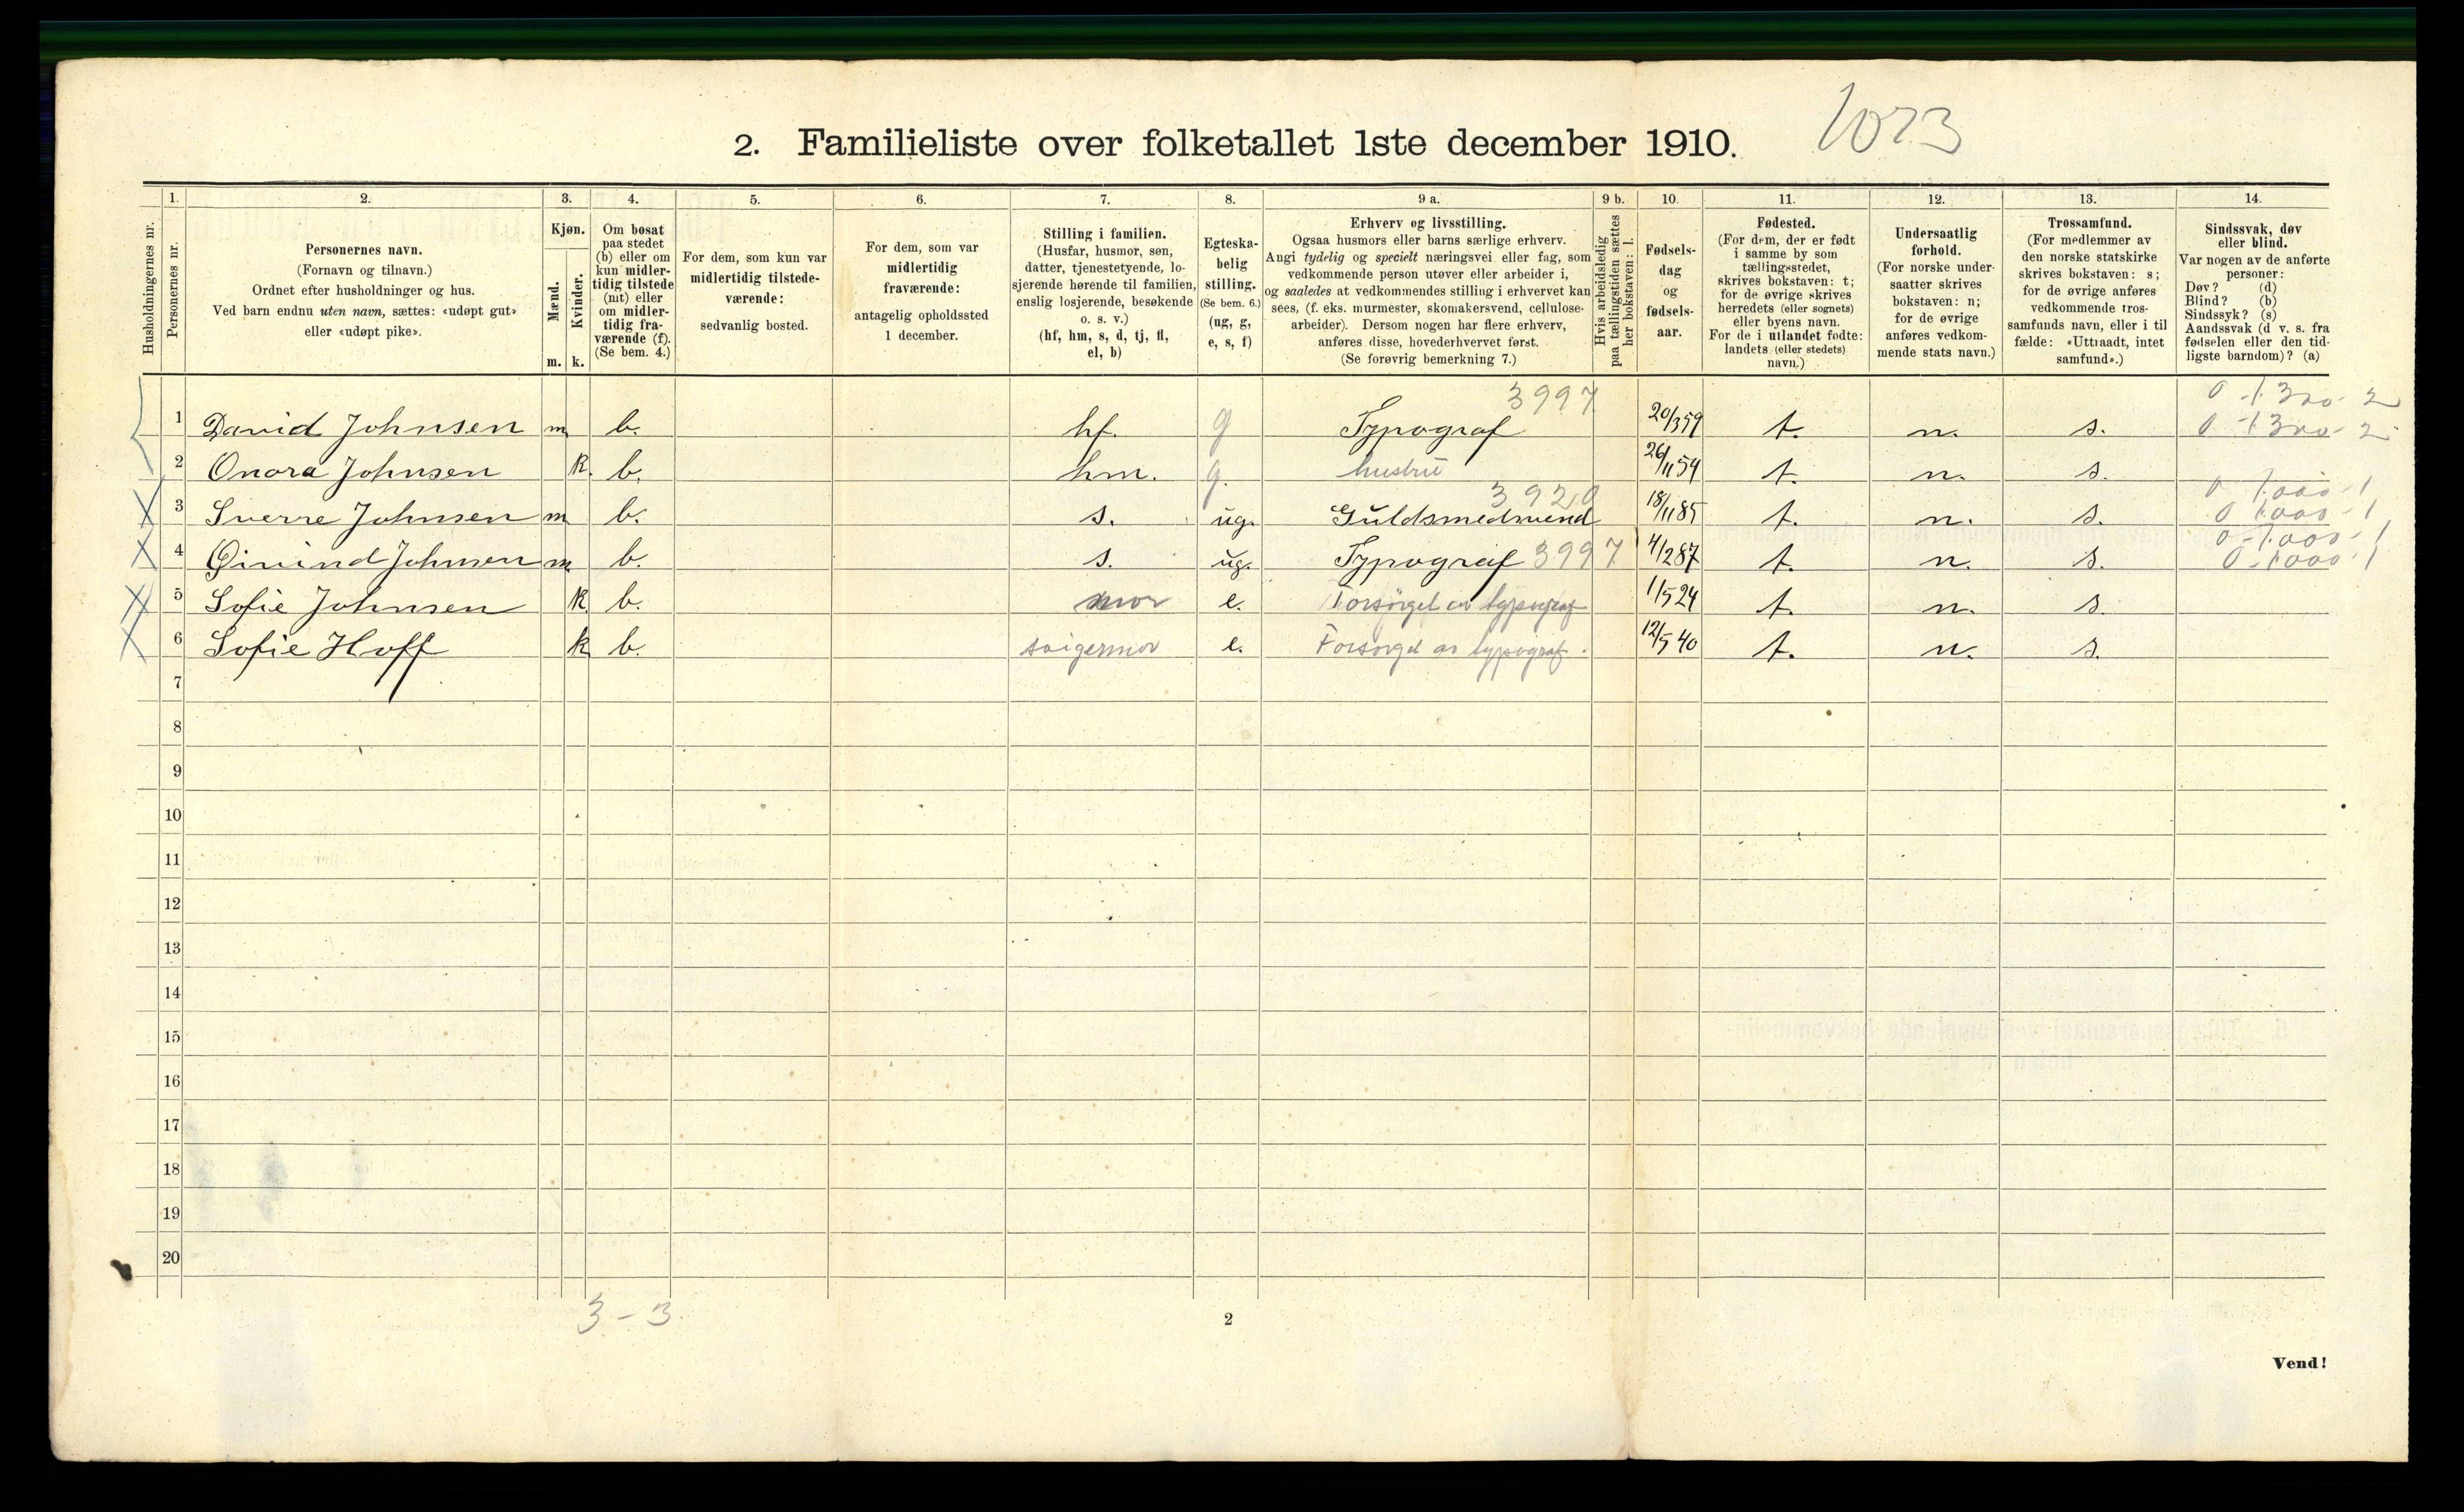 1023
2. Familieliste over folketallet 1ste december 1910.
1. 2. 3. 4. 5. 6. 7. 8. 9 a. 9 b. 10. 11. 12. 13. 14.
Husholdningernes nr.
Personernes nr.
Personernes navn.
(Fornavn og tilnavn.)
Ordnet efter husholdninger og hus.
Ved barn endnu uten navn, sættes: «udøpt gut»
eller «udøpt pike».
Kjøn.
Mænd.
Kvinder.
m. k.
Om bosat
paa stedet
(b) eller om
kun midler-
tidig tilstede
(mt) eller
om midler-
tidig fra-
værende (f).
(Se bem. 4.)
For dem, som kun var
midlertidig tilstede-
værende:
sedvanlig bosted.
For dem, som var
midlertidig
fraværende:
antagelig opholdssted
1 december.
Stilling i familien.
(Husfar, husmor, søn,
datter, tjenestetyende, lo-
sjerende hørende til familien,
enslig losjerende, besøkende
o. s. v.)
(hf, hm, s, d, tj, fl,
el, b)
Egteska-
belig
stilling.
(Se bem. 6.)
(ug, g,
e, s, f)
Erhverv og livsstilling.
Ogsaa husmors eller barns særlige erhverv.
Angi tydelig og specielt næringsvei eller fag, som
vedkommende person utøver eller arbeider i,
og saaledes at vedkommendes stilling i erhvervet kan
sees, (f. eks. murmester, skomakersvend, cellulose-
arbeider). Dersom nogen har flere erhverv,
anføres disse, hovederhvervet først.
(Se forøvrig bemerkning 7.)
Hvis arbeidsledig
paa tællingstiden sættes
her bokstaven: l.
Fødsels-
dag
og
fødsels-
aar.
Fødested.
(For dem, der er født
i samme by som
tællingsstedet,
skrives bokstaven: t;
for de øvrige skrives
herredets (eller sognets)
eller byens navn.
For de i utlandet fødte:
landets (eller stedets)
navn.)
Undersaatlig
forhold.
(For norske under-
saatter skrives
bokstaven: n;
for de øvrige
anføres vedkom-
mende stats navn.)
Trossamfund.
(For medlemmer av
den norske statskirke
skrives bokstaven: s;
for de øvrige anføres
vedkommende tros-
samfunds navn, eller i til
fælde: «Uttraadt, intet
samfund».)
Sindssvak, døv
eller blind.
Var nogen av de anførte
personer:
Døv? (d)
Blind? (b)
Sindssyk? (s)
Aandssvak (d v. s. fra
fødselen eller den tid-
ligste barndom)? (a)
3997
1 David Johnsen m b. hf. g Typograf 20/3 59 t. n. s.
2 Onora Johnsen k. b. hm. g. hustru 26/11 54 t. n. s.
3920
3 Sverre Johnsen m b. s. ug. Guldsmedsvend 18/11 85 t. n. s.
4 Øivind Johnsen m b. s. ug. Typograf 3997 4/2 87 t. n. s.
5 Sofie Johnsen k. b. mor e. Forsørget av typograf 1/5 24 t. n. s.
6 Sofie Hoff k b. svigermor e. Forsørget av typograf. 12/5 40 t. n. s.
7
8
9
10
11
12
13
14
15
16
17
18
19
20
3 - 3
2
Vend!